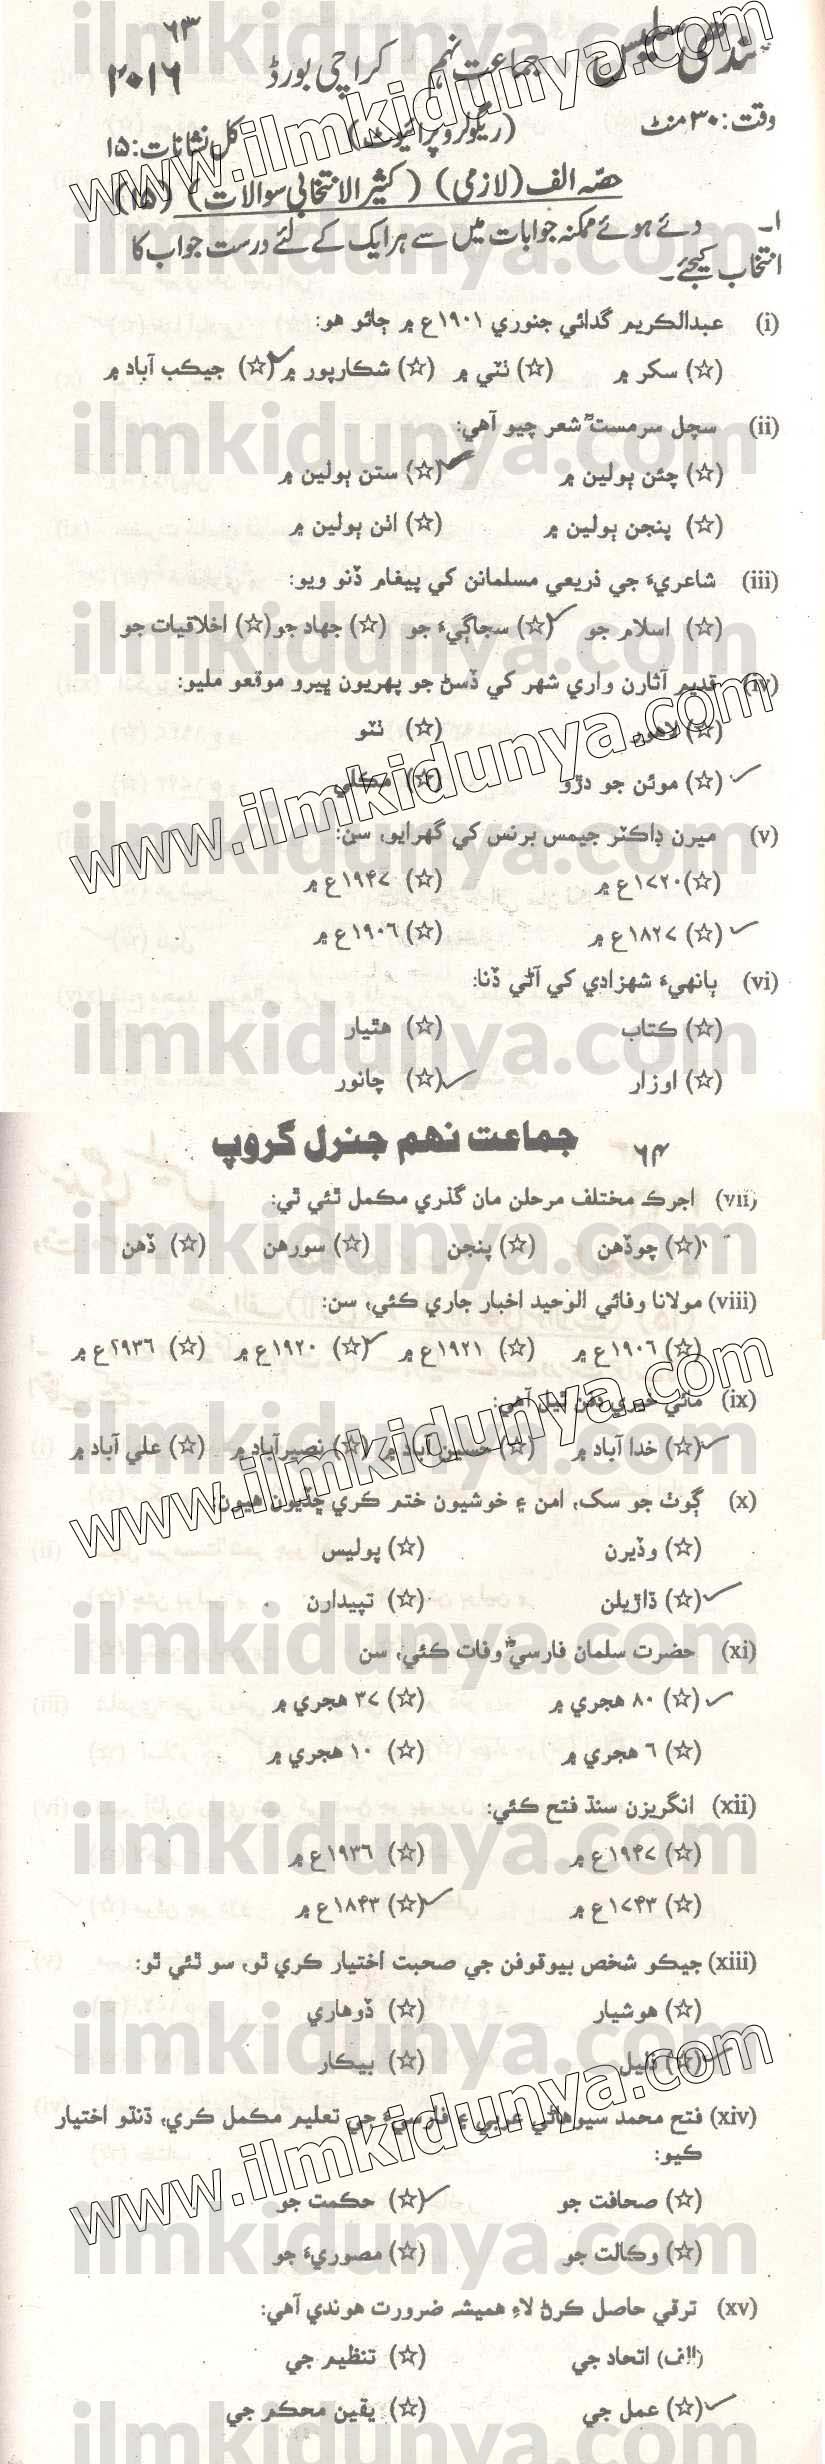 ٦٣
سندھی سلیس جماعت نہم کراچی بورڈ ٢٠١٦
وقت: ٣٠ منٹ (ریگولر و پرائیویٹ) کل نشانات: ١٥
حصّہ الف (لازمی) (کثیر الانتخابی سوالات) (١٥)
١۔ دئے ہوئے ممکنہ جوابات میں سے ہر ایک کے لئے درست جواب کا
انتخاب کیجئے۔
(i) عبدالڪريم گدائي جنوري ١٩٠١ع ۾ ڄائو هو:
(☆) سکر ۾ (☆) ٺٽي ۾ (☆) شڪارپور ۾ (☆) جيڪب آباد ۾
(ii) سچل سرمستؒ شعر چيو آهي:
(☆) چئن ٻولين ۾ (☆) ستن ٻولين ۾
(☆) پنجن ٻولين ۾ (☆) اٺن ٻولين ۾
(iii) شاعريءَ جي ذريعي مسلمانن کي پيغام ڏنو ويو:
(☆) اسلام جو (☆) سجاڳيءَ جو (☆) جهاد جو (☆) اخلاقيات جو
(iv) قديم آثارن واري شهر کي ڏسڻ جو پهريون ڀيرو موقعو مليو:
(☆) لاهور (☆) ٺٽو
(☆) موئن جو دڙو (☆) مڪلي
(v) ميرن ڊاڪٽر جيمس برنس کي گهرايو، سن:
(☆) ١٧٢٠ع ۾ (☆) ١٩٤٧ع ۾
(☆) ١٨٢٧ع ۾ (☆) ١٩٠٦ع ۾
(vi) ٻانهيءَ شهزادي کي آڻي ڏنا:
(☆) ڪتاب (☆) هٿيار
(☆) اوزار (☆) چانور
جماعت نهم جنرل گروپ ٦٤
(vii) اجرڪ مختلف مرحلن مان گذري مڪمل ٿئي ٿي:
(☆) چوڏهن (☆) پنجن (☆) سورهن (☆) ڏهن
(viii) مولانا وفائي الوحيد اخبار جاري ڪئي، سن:
(☆) ١٩٠٦ع ۾ (☆) ١٩٢١ع ۾ (☆) ١٩٢٠ع ۾ (☆) ٢٩٣٦ع ۾
(ix) مائي خيري دفن ٿيل آهي:
(☆) خدا آباد ۾ (☆) حسين آباد ۾ (☆) نصيرآباد ۾ (☆) علي آباد ۾
(x) ڳوٺ جو سک، امن ۽ خوشيون ختم ڪري ڇڏيون هيون:
(☆) وڏيرن (☆) پوليس
(☆) ڌاڙيلن (☆) تپيدارن
(xi) حضرت سلمان فارسيؓ وفات ڪئي، سن
(☆) ٨٠ هجري ۾ (☆) ٣٧ هجري ۾
(☆) ٦ هجري ۾ (☆) ١٠ هجري ۾
(xii) انگريزن سنڌ فتح ڪئي:
(☆) ١٩٤٧ع ۾ (☆) ١٩٣٦ع ۾
(☆) ١٧٤٣ع ۾ (☆) ١٨٤٣ع ۾
(xiii) جيڪو شخص بيوقوفن جي صحبت اختيار ڪري ٿو، سو ٿئي ٿو:
(☆) هوشيار (☆) ڏوهاري
(☆) ذليل (☆) بيڪار
(xiv) فتح محمد سيوهاڻي عربي ۽ فارسيءَ جي تعليم مڪمل ڪري، ڌنڌو اختيار
ڪيو:
(☆) صحافت جو (☆) حڪمت جو
(☆) وڪالت جو (☆) مصوريءَ جو
(xv) ترقي حاصل ڪرڻ لاءِ هميشہ ضرورت هوندي آهي:
(الف) اتحاد جي (☆) تنظيم جي
(☆) عمل جي (☆) يقين محڪم جي